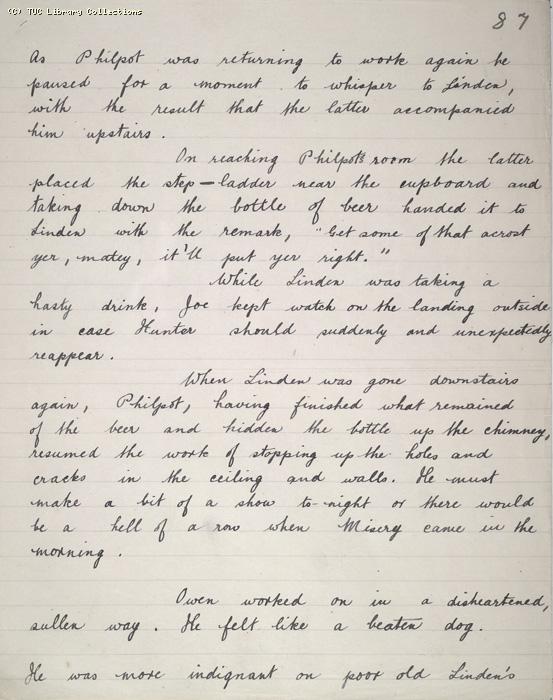 (C) TUC Library Collections
87
As Philpot was returning to work again he
paused for a moment to whisper to Linden,
with the result that the latter accompanied
him upstairs.
On reaching Philpot's room the latter
placed the step-ladder near the cupboard and
taking down the bottle of beer handed it to
Linden with the remark, "Get some of that acrost
yer, matey, it'll put yer right."
While Linden was taking a
hasty drink, Joe kept watch on the landing outside
in case Hunter should suddenly and unexpectedly
reappear.
When Linden was gone downstairs
again, Philpot, having finished what remained
of the beer and hidden the bottle up the chimney,
resumed the work of stopping up the holes and
cracks in the ceiling and walls. He must
make a bit of a show to-night or there would
be a hell of a row when Misery came in the
morning.
Owen worked on in a disheartened,
sullen way. He felt like a beaten dog.
He was more indignant on poor old Linden's